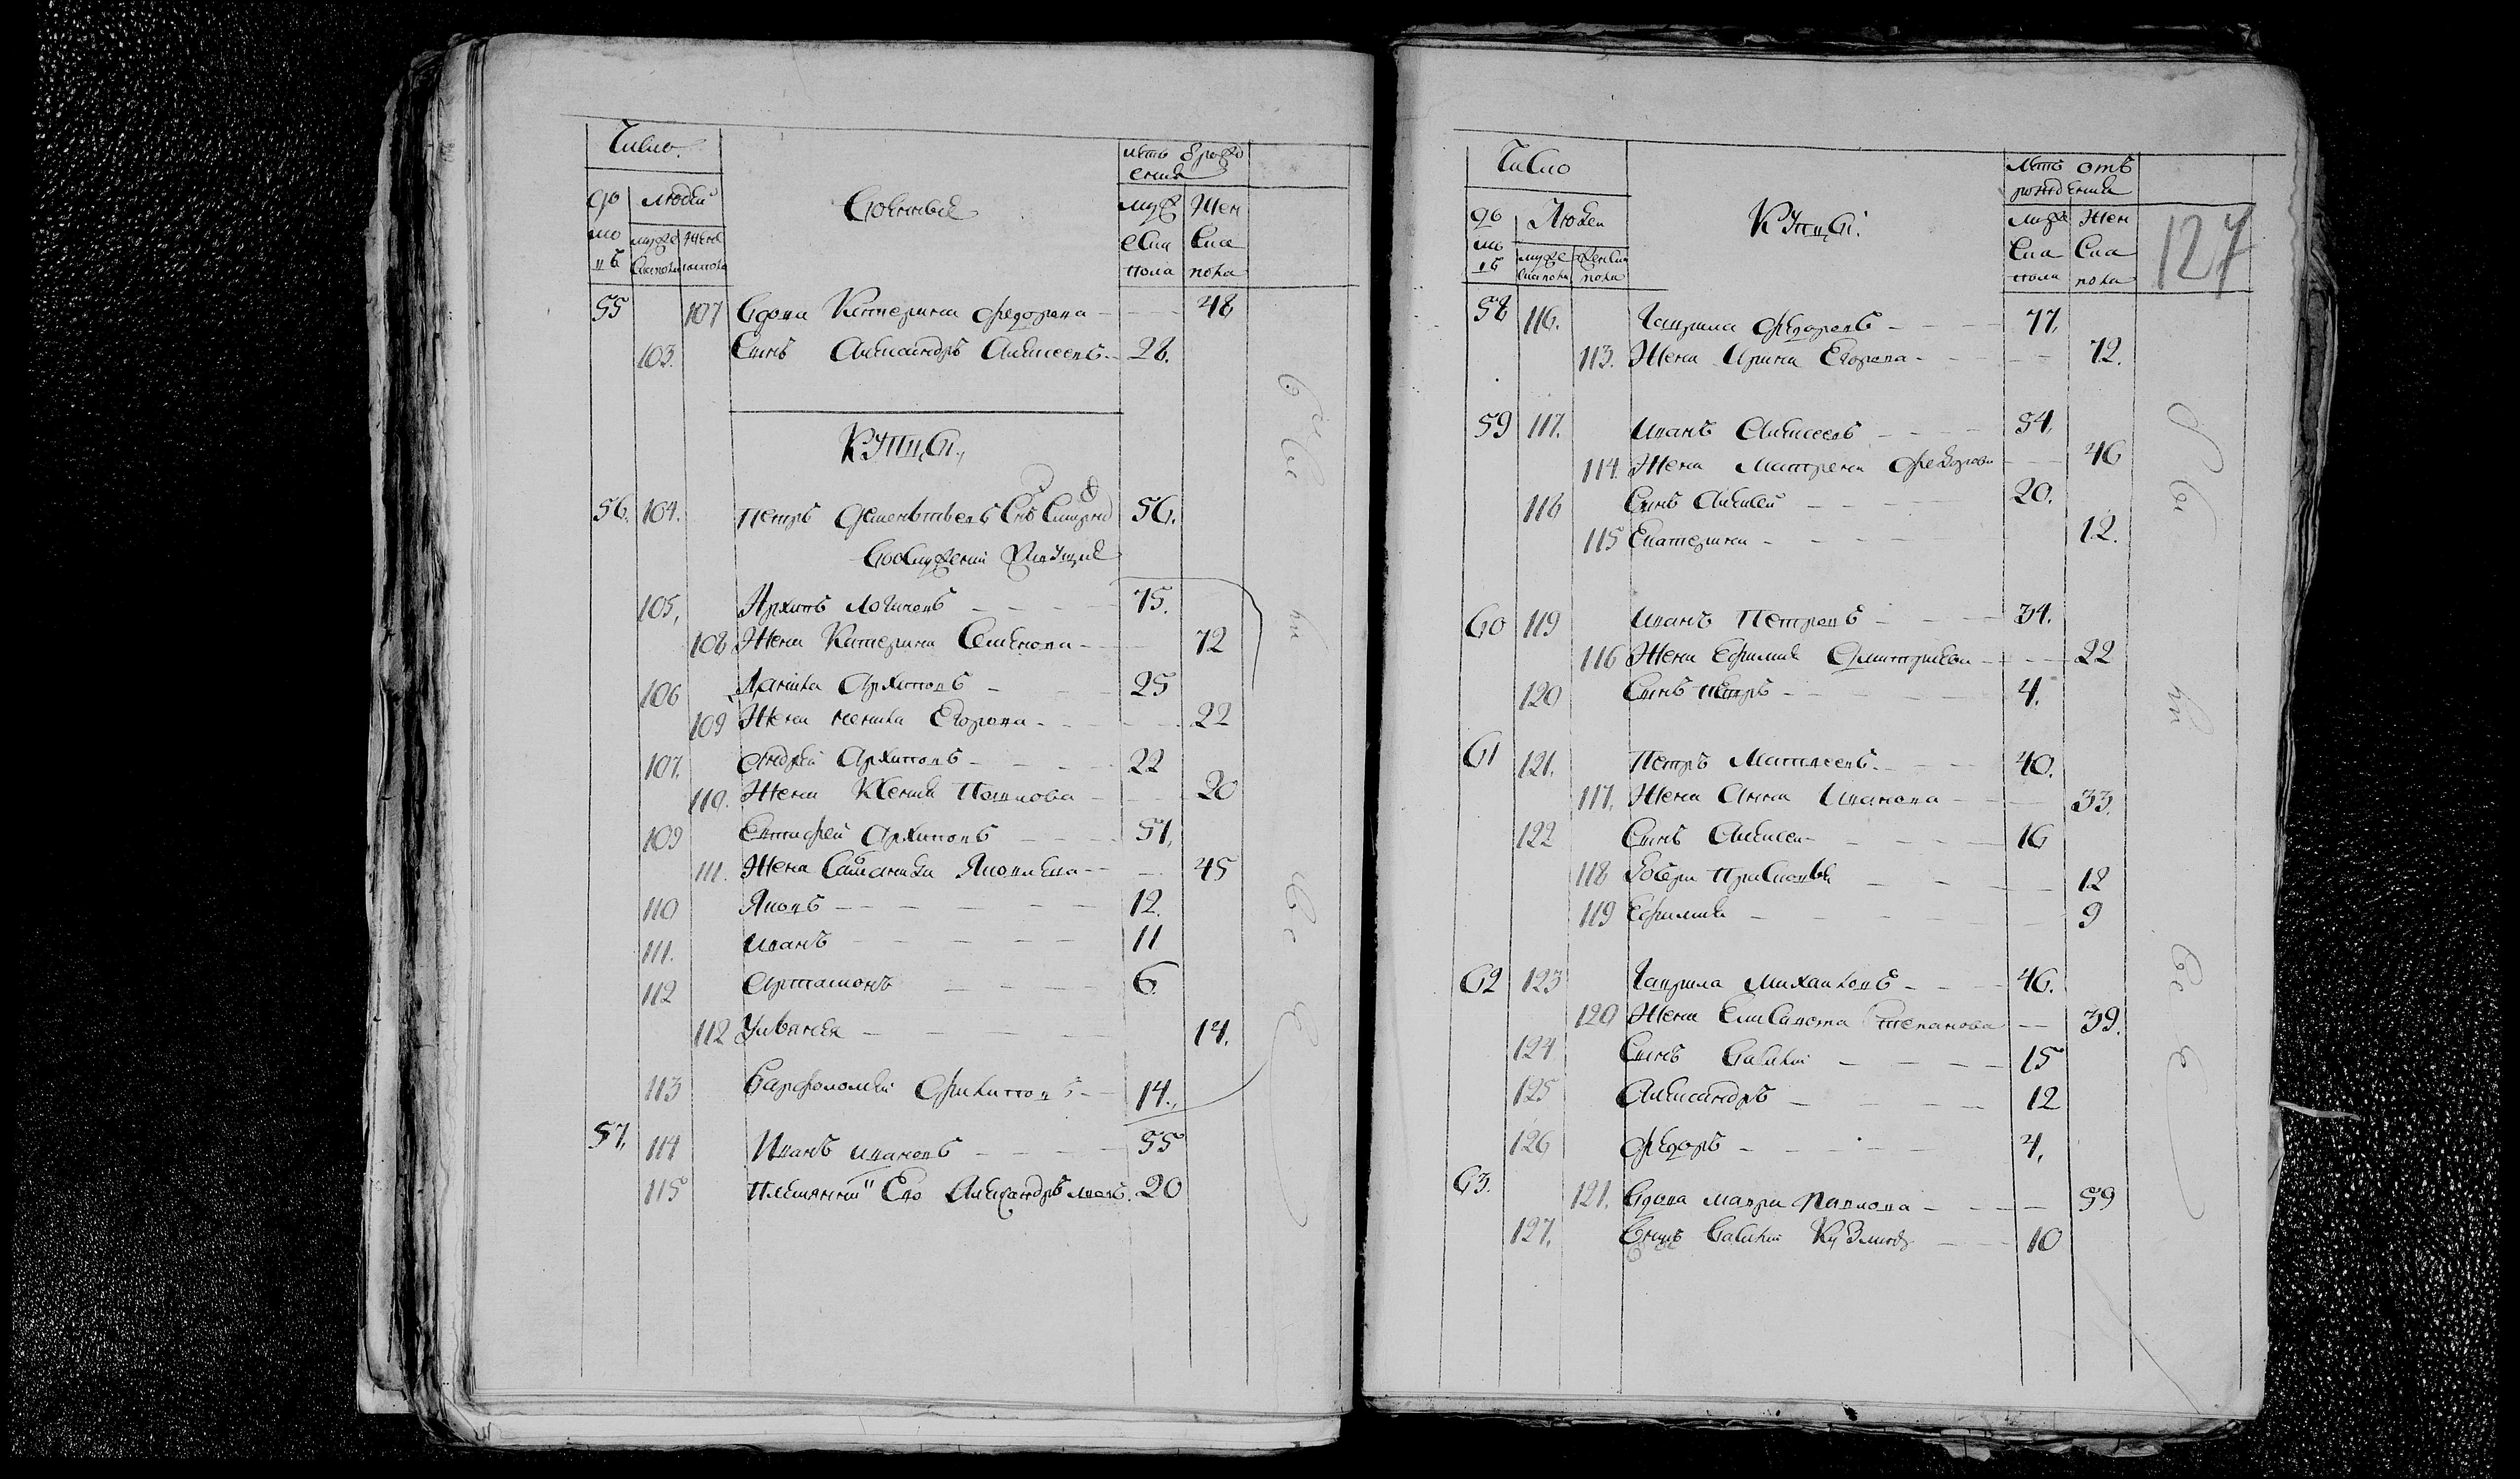 Число
лѣтъ ѿрожд
ения
дво
ро
въ
людей
мужс
ска пола
женс
пола
Военныя
муж
еска
пола
Жен
ска
пола
55 107 Вдова Катерина Федорова 48
103. Сынъ Александръ Алексеевъ 28.
Купцы,
56. 104. Петръ Дементьевъ Снъ 56.
105, Архипъ Логиновъ 75.
108 Жена Катерина Семенова 72
106 Данила Архиповъ 25
109 Жена Егорова 22
107. Андрей Архиповъ 22
110. Жена Ксения 20
109 Евтифей Архиповъ 51,
111. Жена Яковлева 45
110 Яковъ 12.
111. Иванъ 11
112 Артамонъ 6
112 Ульяния 14.
113 Варфоломей Филиповъ 14.
57. 114 Иванъ Ивановъ 55
115 Племянникъ Ево Александръ 20
Число
Лѣтъ отъ
рождения
дво
ро
въ
Людей
муже
ска пола
Женска
пола
Купцы.
муже
ска
пола
Жен
ска
пола
127
58 116. Гаврила Федоровъ 77,
113. Жена Ирина Егорова 72.
59 117. Иванъ Алексеевъ 54,
114. Жена Матрена Федорова 46
118 Сынъ Алексей 20.
115 Екатерина 12.
60 119 Иванъ Петровъ 34.
116 Жена Ефимия Дмитриева 22
120 Сынъ Петръ 4.
61 121. Петръ Матвеевъ 40.
117. Жена Анна Иванова 33.
122 Сынъ Алексей 16
118 Дочери Прасковья 12
119 Ефимия 9
62 123 Гаврила Михаиловъ 46.
120 Жена Елисавета Степанова 39.
124 Сынъ Василий 15
125 Александръ 12
126 Федоръ 4,
63. 121. Вдова Мавра Павлова 59
127. Внукъ Василий Кузминъ 10